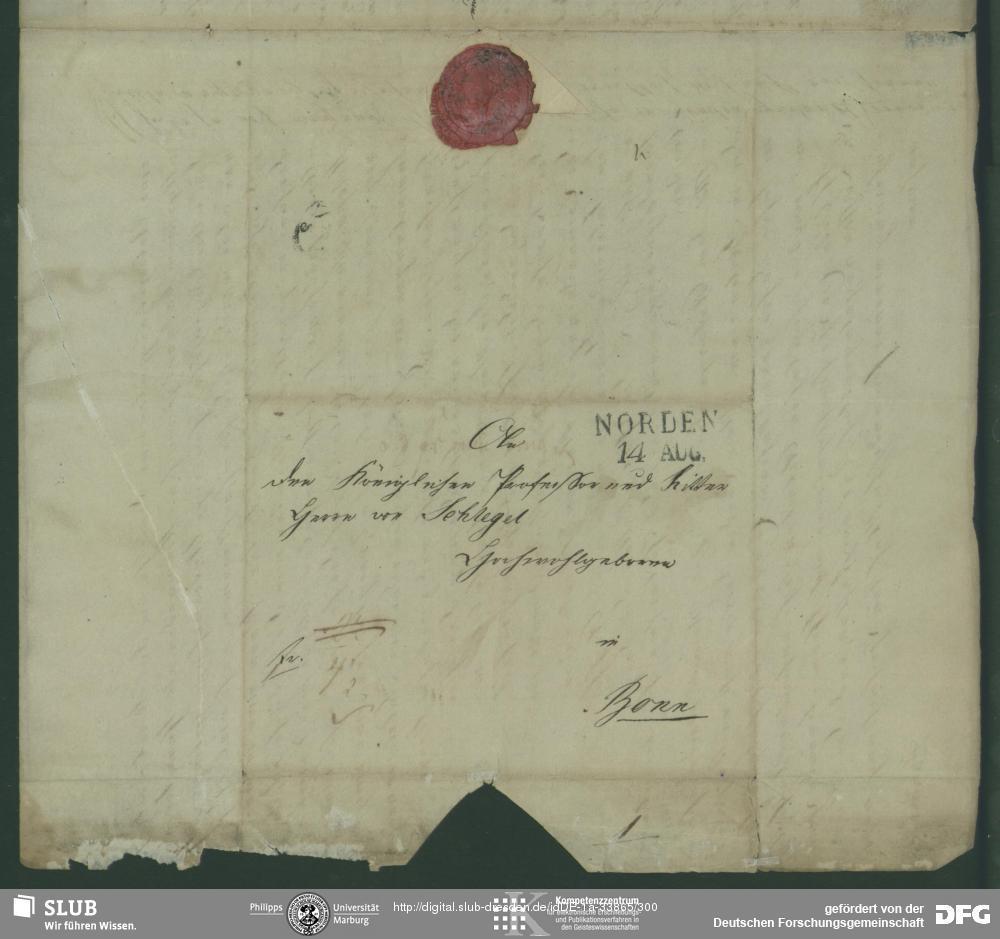 NORDEN
14 AUG.
An
den Königlichen Professor und Ritter
Herrn von Schlegel
Hochwohlgeboren
fr.
in
Bonn
1
SLUB
Wir führen Wissen.
Philipps Universität
Marburg
http://digital.slub-dresden.de/id
DE-1a-33865/300
Kompetenzzentrum
für elektronische Erschließungs-
und Publikationsverfahren in
den Geisteswissenschaften
gefördert von der
Deutschen Forschungsgemeinschaft
DFG